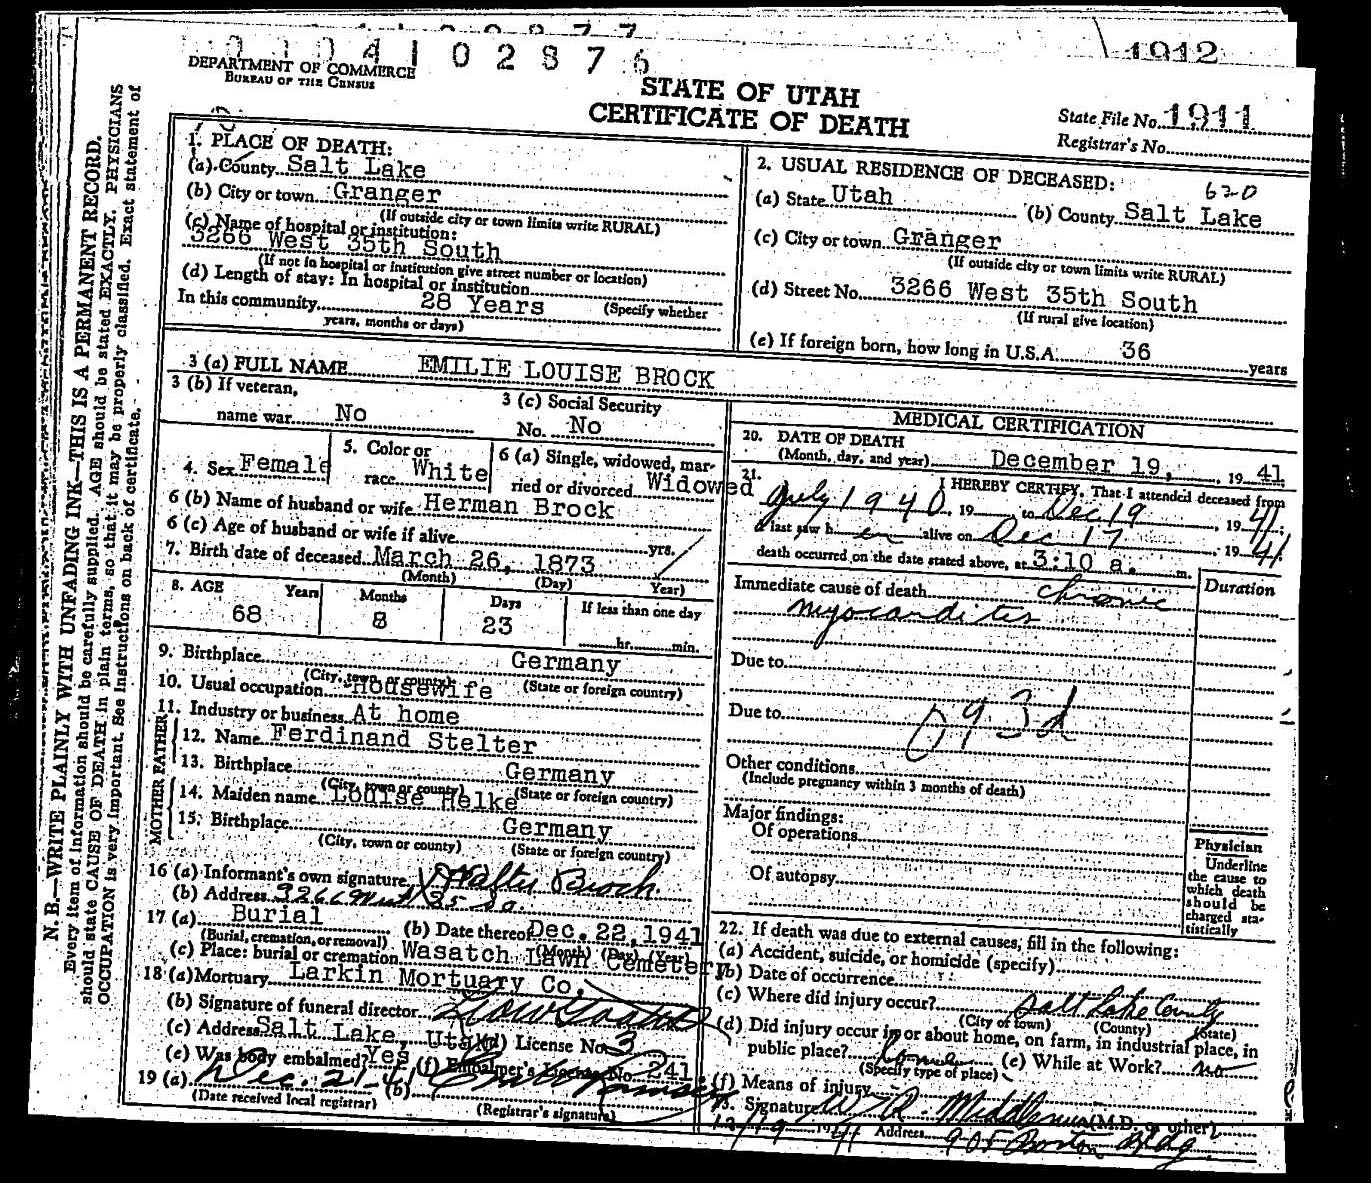 1912
0104102876
DEPARTMENT OF COMMERCE
BUREAU OF THE CENSUS
STATE OF UTAH
CERTIFICATE OF DEATH
State File No. 1911
Registrar's No.
N. B.—WRITE PLAINLY WITH UNFADING INK—THIS IS A PERMANENT RECORD.
Every item of information should be carefully supplied. AGE should be stated EXACTLY. PHYSICIANS
should state CAUSE OF DEATH in plain terms, so that it may be properly classified. Exact statement of
OCCUPATION is very important. See instructions on back of certificate.
1. PLACE OF DEATH:
(a) County Salt Lake
(b) City or town Granger
(If outside city or town limits write RURAL)
(c) Name of hospital or institution:
3266 West 35th South
(If not in hospital or institution give street number or location)
(d) Length of stay: In hospital or institution
In this community 28 Years (Specify whether
years, months or days)
2. USUAL RESIDENCE OF DECEASED: 620
(a) State Utah (b) County Salt Lake
(c) City or town Granger
(If outside city or town limits write RURAL)
(d) Street No. 3266 West 35th South
(If rural give location)
(e) If foreign born, how long in U.S.A. 36 years
3 (a) FULL NAME EMILIE LOUISE BROCK
3 (b) If veteran,
name war No
3 (c) Social Security
No. No
4. Sex Female
5. Color or
race White
6 (a) Single, widowed, mar-
ried or divorced Widowed
6 (b) Name of husband or wife Herman Brock
6 (c) Age of husband or wife if alive yrs.
7. Birth date of deceased March 26, 1873
(Month) (Day) Year)
8. AGE Years Months Days If less than one day
68 8 23 hr. min.
9. Birthplace Germany
(City, town or county) (State or foreign country)
10. Usual occupation Housewife
11. Industry or business At home
FATHER
12. Name Ferdinand Stelter
13. Birthplace Germany
(City, town or county) (State or foreign country)
MOTHER
14. Maiden name Louise Helke
15. Birthplace Germany
(City, town or county) (State or foreign country)
16 (a) Informant's own signature Walter Brock
(b) Address 3266 West 35 So.
17 (a) Burial (b) Date thereof Dec. 22, 1941
(Burial, cremation, or removal) (Month) (Day) (Year)
(c) Place: burial or cremation Wasatch Lawn Cemetery
18 (a) Mortuary Larkin Mortuary Co.
(b) Signature of funeral director
(c) Address Salt Lake, Utah (d) License No. 3
(e) Was body embalmed? Yes (f) Embalmer's License No. 241
19 (a) Dec. 21-41 (b)
(Date received local registrar) (Registrar's signature)
MEDICAL CERTIFICATION
20. DATE OF DEATH
(Month, day, and year) December 19, 19 41
21. I HEREBY CERTIFY, That I attended deceased from
July 1940, 19 to Dec 19, 19 41;
I last saw h er alive on Dec 17, 19 41
death occurred on the date stated above, at 3:10 a. m.
Duration
Immediate cause of death Chronic
myocarditis
Due to
Due to 093d
Other conditions
(Include pregnancy within 3 months of death)
Major findings:
Of operations
Of autopsy
Physician
Underline
the cause to
which death
should be
charged sta-
tistically
22. If death was due to external causes, fill in the following:
(a) Accident, suicide, or homicide (specify)
(b) Date of occurrence
(c) Where did injury occur? Salt Lake County
(City or town) (County) (State)
(d) Did injury occur in or about home, on farm, in industrial place, in
public place? (e) While at Work? no
(Specify type of place)
(f) Means of injury
23. Signature W. R. (M.D. or other)
12/19 1941 Address 905 Boston Bldg.